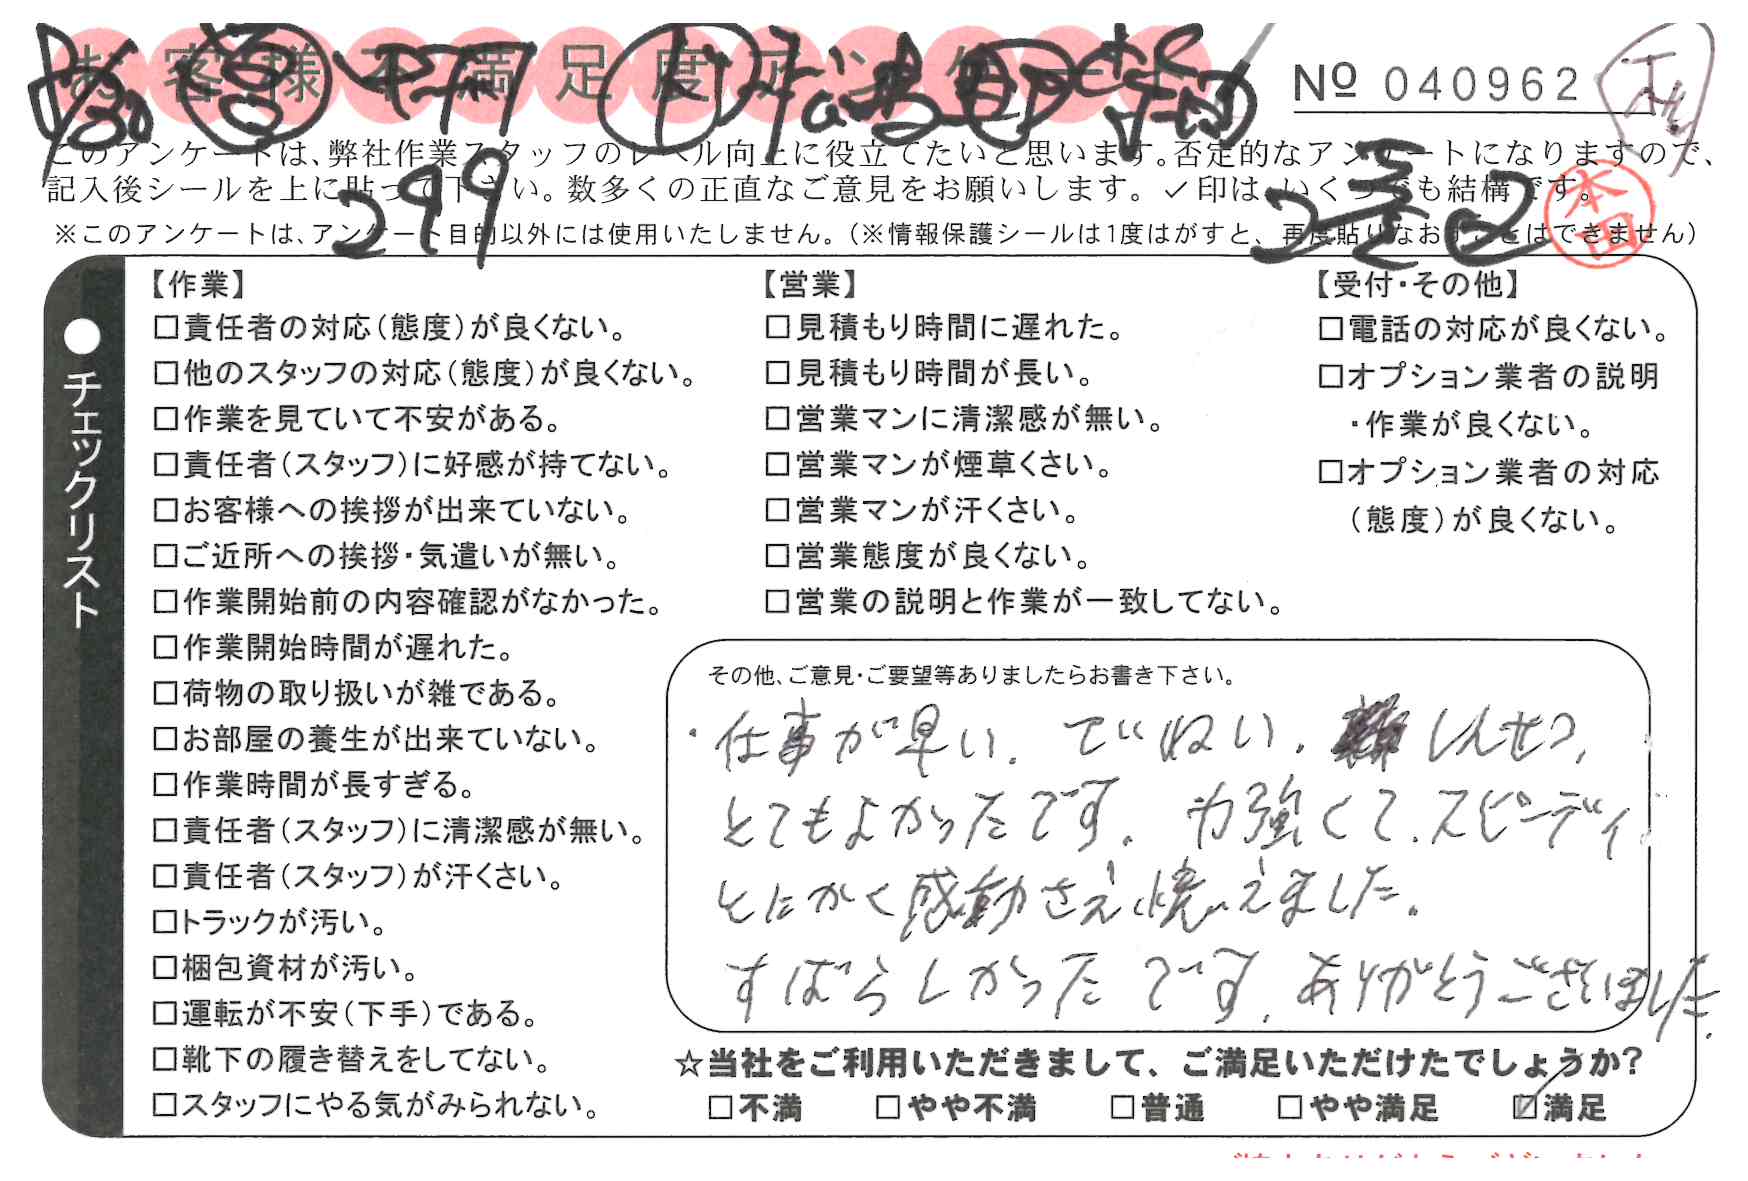 お客様不満足度アンケート
№ 040962
このアンケートは、弊社作業スタッフのレベル向上に役立てたいと思います。否定的なアンケートになりますので、
記入後シールを上に貼って下さい。数多くの正直なご意見をお願いします。✓印は、いくつでも結構です。
299
本田
※このアンケートは、アンケート目的以外には使用いたしません。（※情報保護シールは1度はがすと、再度貼りなおすことはできません）
●チェックリスト
【作業】
□責任者の対応（態度）が良くない。
□他のスタッフの対応（態度）が良くない。
□作業を見ていて不安がある。
□責任者（スタッフ）に好感が持てない。
□お客様への挨拶が出来ていない。
□ご近所への挨拶・気遣いが無い。
□作業開始前の内容確認がなかった。
□作業開始時間が遅れた。
□荷物の取り扱いが雑である。
□お部屋の養生が出来ていない。
□作業時間が長すぎる。
□責任者（スタッフ）に清潔感が無い。
□責任者（スタッフ）が汗くさい。
□トラックが汚い。
□梱包資材が汚い。
□運転が不安（下手）である。
□靴下の履き替えをしてない。
□スタッフにやる気がみられない。
【営業】
□見積もり時間に遅れた。
□見積もり時間が長い。
□営業マンに清潔感が無い。
□営業マンが煙草くさい。
□営業マンが汗くさい。
□営業態度が良くない。
□営業の説明と作業が一致してない。
【受付・その他】
□電話の対応が良くない。
□オプション業者の説明
・作業が良くない。
□オプション業者の対応
（態度）が良くない。
その他、ご意見・ご要望等ありましたらお書き下さい。
・仕事が早い、ていねい、しんせつ、
とてもよかったです。力強くて、スピーディ
とにかく感動さえ憶えました。
すばらしかったです。ありがとうございました。
☆当社をご利用いただきまして、ご満足いただけたでしょうか?
□不満 □やや不満 □普通 □やや満足 ☑満足